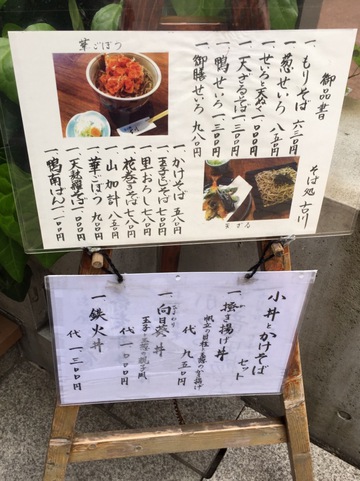 御品書
そば処 吉川
一、もりそば 六三〇円
一、葱せいろ 八五〇円
一、せいろと天ぬく 一、〇〇〇円
一、天ざるそば 一、三〇〇円
一、鴨せいろ 一、三〇〇円
一、御膳せいろ 九八〇円
天ざる
華ごぼう
一、かけそば 五八〇円
一、玉子とじそば 七八〇円
一、里おろし 七八〇円
一、花巻そば 七八〇円
一、山加計 八五〇円
一、華ごぼう 九〇〇円
一、天麩羅そば 一、三〇〇円
一、鴨南ばん 一、二〇〇円
小丼とかけそば
セット
一、掻き揚げ丼
帆立の貝柱と
代 九五〇円
一、向日葵丼
ひまわり
代 一、〇〇〇円
一、鉄火丼
代 一、三〇〇円